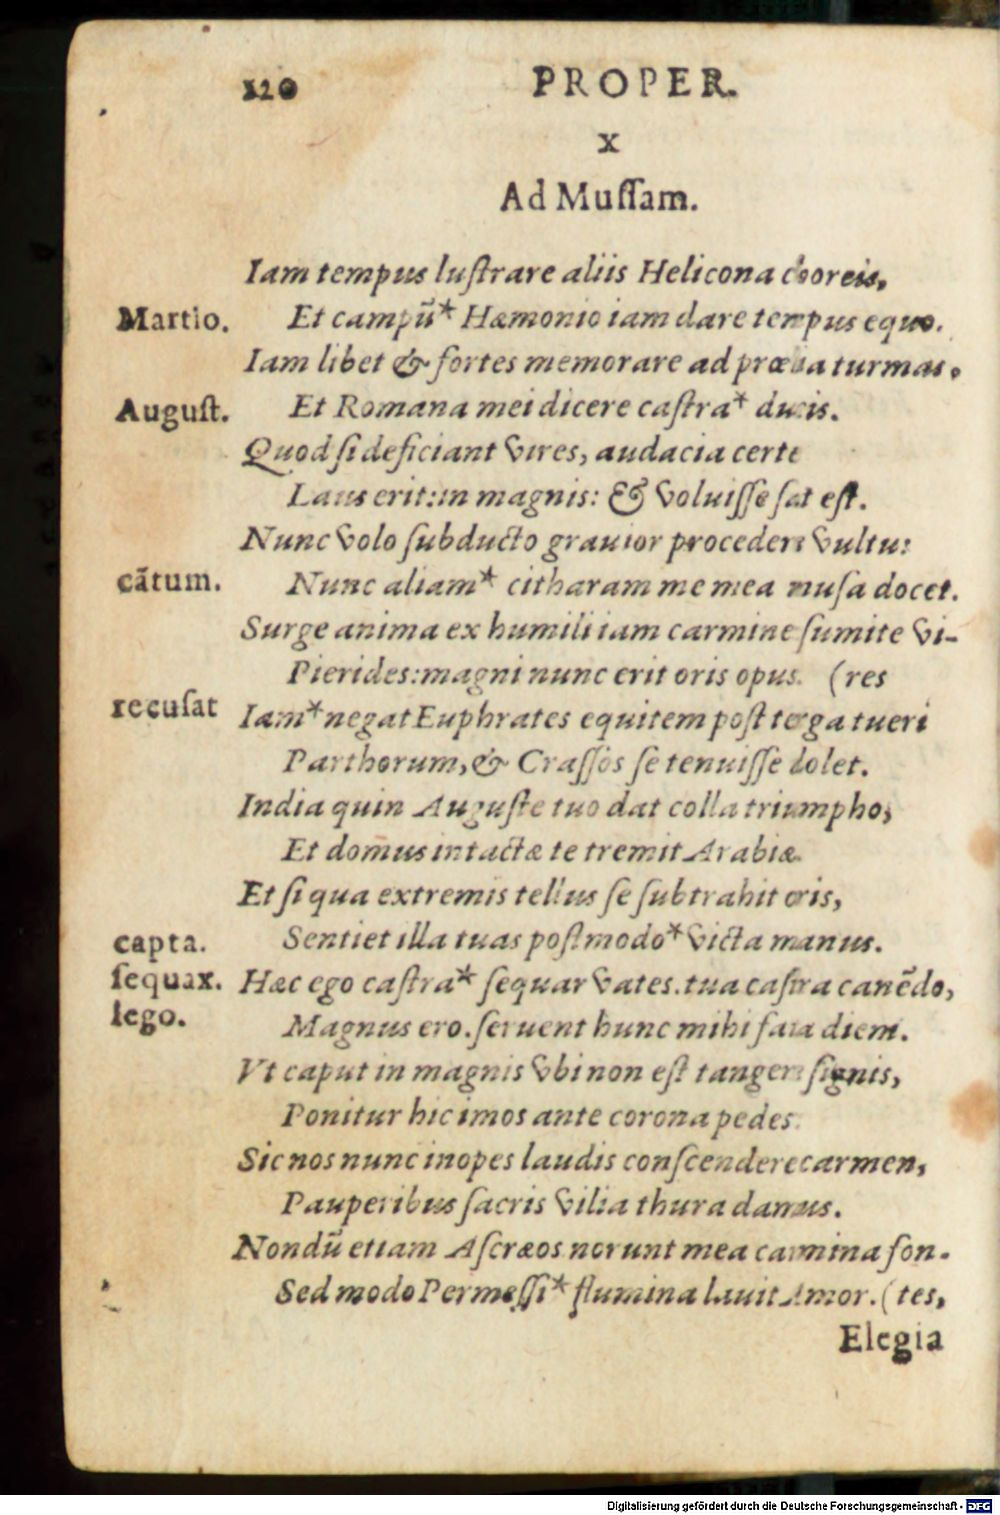 120 PROPER.
x
Ad Muſſam.
Iam tempus luſtrare aliis Helicona choreis,
Martio. Et campũ* Hæmonio iam dare tempus equo.
Iam libet & fortes memorare ad prœlia turmas.
Auguſt. Et Romana mei dicere caſtra* ducis.
Quod ſi deficiant vires, audacia certe
Laus erit: in magnis: & voluiſſe ſat eſt.
Nunc volo ſubducto grauior procedere vultu:
cãtum. Nunc aliam* citharam me mea muſa docet.
Surge anima ex humili iam carmine ſumite vi-
Pierides: magni nunc erit oris opus. (res
recuſat Iam* negat Euphrates equitem poſt terga tueri
Parthorum, & Craſſos ſe tenuiſſe dolet.
India quin Auguſte tuo dat colla triumpho,
Et domus intactæ te tremit Arabiæ.
Et ſi qua extremis tellus ſe ſubtrahit oris,
capta. Sentiet illa tuas poſtmodo* victa manus.
ſequax. Hæc ego caſtra* ſequar vates. tua caſtra canẽdo,
lego. Magnus ero. ſeruent hunc mihi fata diem.
Vt caput in magnis vbi non eſt tangere ſignis,
Ponitur hic imos ante corona pedes.
Sic nos nunc inopes laudis conſcendere carmen,
Pauperibus ſacris vilia thura damus.
Nondũ etiam Aſcræos norunt mea carmina fon-
Sed modo Permeſſi* flumina lauit Amor. (tes,
Elegia
Digitalisierung gefördert durch die Deutsche Forschungsgemeinschaft - DFG